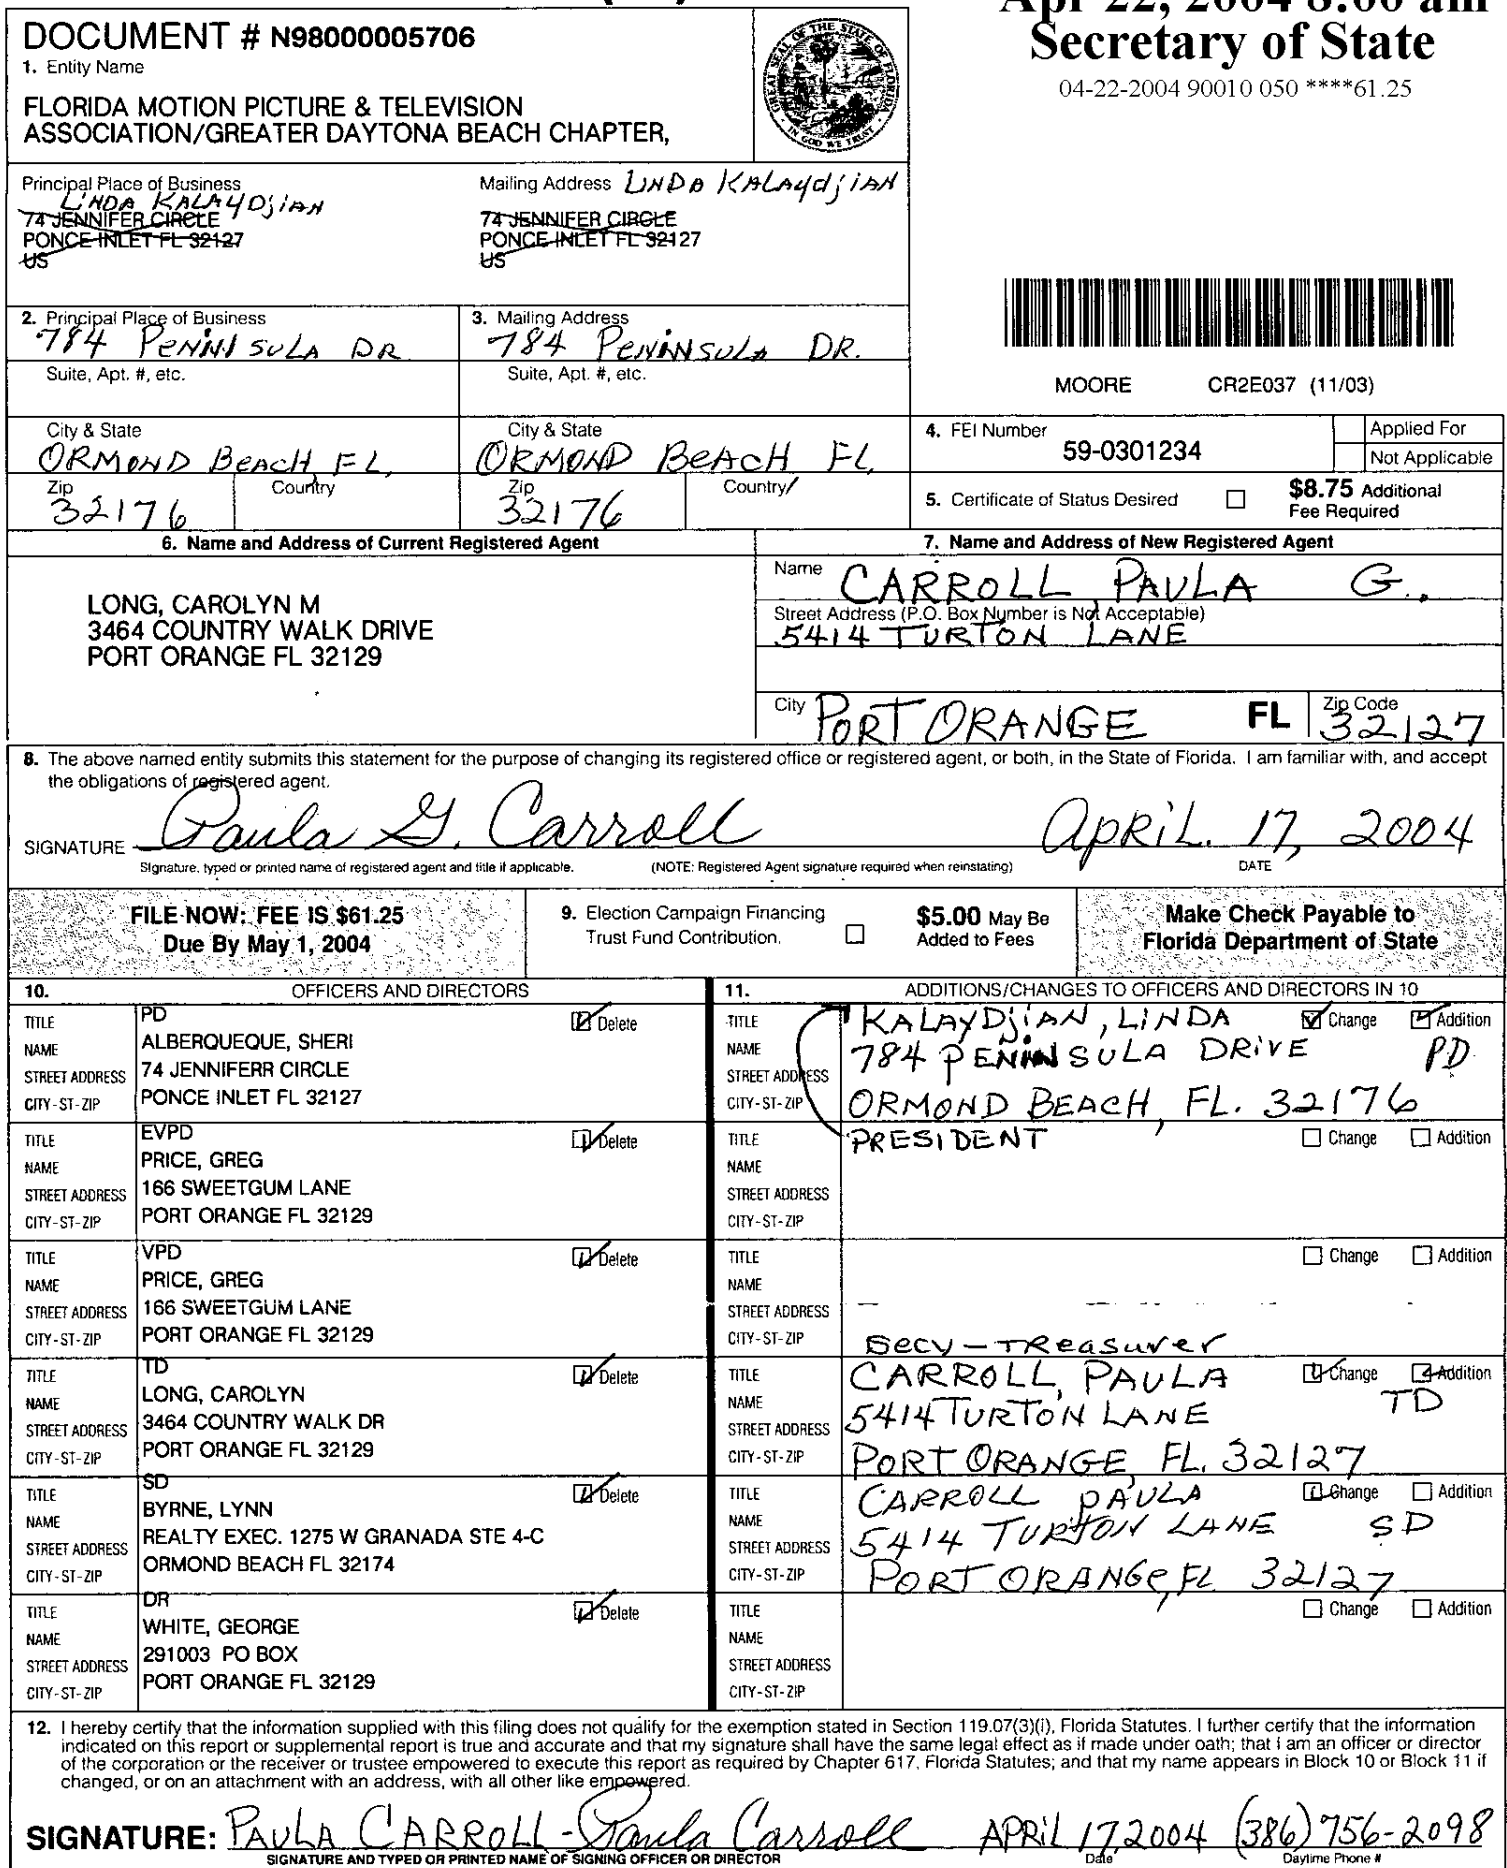 Apr 22, 2004 8:00 am
Secretary of State
04-22-2004 90010 050 ****61.25
DOCUMENT # N98000005706
1. Entity Name
FLORIDA MOTION PICTURE & TELEVISION
ASSOCIATION/GREATER DAYTONA BEACH CHAPTER,
GREAT SEAL OF THE STATE OF FLORIDA
IN GOD WE TRUST
Principal Place of Business
LINDA KALAYDJIAN
74 JENNIFER CIRCLE
PONCE INLET FL 32127
US
Mailing Address LINDA KALAYDJIAN
74 JENNIFER CIRCLE
PONCE INLET FL 32127
US
2. Principal Place of Business
784 PENINSULA DR
Suite, Apt. #, etc.
3. Mailing Address
784 PENINSULA DR.
Suite, Apt. #, etc.
MOORE CR2E037 (11/03)
City & State
ORMOND BEACH FL,
Zip Country
32176
City & State
ORMOND BEACH FL
Zip Country
32176
4. FEI Number
59-0301234
Applied For
Not Applicable
5. Certificate of Status Desired
$8.75 Additional
Fee Required
6. Name and Address of Current Registered Agent
LONG, CAROLYN M
3464 COUNTRY WALK DRIVE
PORT ORANGE FL 32129
7. Name and Address of New Registered Agent
Name CARROLL PAULA G.
Street Address (P.O. Box Number is Not Acceptable)
5414 TURTON LANE
City PORT ORANGE FL Zip Code 32127
8. The above named entity submits this statement for the purpose of changing its registered office or registered agent, or both, in the State of Florida. I am familiar with, and accept
the obligations of registered agent.
SIGNATURE Paula G. Carroll April. 17, 2004
Signature, typed or printed name of registered agent and title if applicable. (NOTE: Registered Agent signature required when reinstating) DATE
FILE NOW: FEE IS $61.25
Due By May 1, 2004
9. Election Campaign Financing
Trust Fund Contribution.
$5.00 May Be
Added to Fees
Make Check Payable to
Florida Department of State
10. OFFICERS AND DIRECTORS
TITLE PD Delete
NAME ALBERQUEQUE, SHERI
STREET ADDRESS 74 JENNIFERR CIRCLE
CITY-ST-ZIP PONCE INLET FL 32127
TITLE EVPD Delete
NAME PRICE, GREG
STREET ADDRESS 166 SWEETGUM LANE
CITY-ST-ZIP PORT ORANGE FL 32129
TITLE VPD Delete
NAME PRICE, GREG
STREET ADDRESS 166 SWEETGUM LANE
CITY-ST-ZIP PORT ORANGE FL 32129
TITLE TD Delete
NAME LONG, CAROLYN
STREET ADDRESS 3464 COUNTRY WALK DR
CITY-ST-ZIP PORT ORANGE FL 32129
TITLE SD Delete
NAME BYRNE, LYNN
STREET ADDRESS REALTY EXEC. 1275 W GRANADA STE 4-C
CITY-ST-ZIP ORMOND BEACH FL 32174
TITLE DR Delete
NAME WHITE, GEORGE
STREET ADDRESS 291003 PO BOX
CITY-ST-ZIP PORT ORANGE FL 32129
11. ADDITIONS/CHANGES TO OFFICERS AND DIRECTORS IN 10
TITLE KALAYDJIAN, LINDA Change Addition
NAME 784 PENINSULA DRIVE PD
STREET ADDRESS
CITY-ST-ZIP ORMOND BEACH, FL. 32176
TITLE PRESIDENT Change Addition
NAME
STREET ADDRESS
CITY-ST-ZIP
TITLE Change Addition
NAME
STREET ADDRESS
CITY-ST-ZIP Secy-Treasurer
TITLE CARROLL, PAULA Change Addition
NAME 5414 TURTON LANE TD
STREET ADDRESS
CITY-ST-ZIP PORT ORANGE, FL. 32127
TITLE CARROLL PAULA Change Addition
NAME
STREET ADDRESS 5414 TURTON LANE SD
CITY-ST-ZIP PORT ORANGE, FL 32127
TITLE Change Addition
NAME
STREET ADDRESS
CITY-ST-ZIP
12. I hereby certify that the information supplied with this filing does not qualify for the exemption stated in Section 119.07(3)(i), Florida Statutes. I further certify that the information
indicated on this report or supplemental report is true and accurate and that my signature shall have the same legal effect as if made under oath; that I am an officer or director
of the corporation or the receiver or trustee empowered to execute this report as required by Chapter 617, Florida Statutes; and that my name appears in Block 10 or Block 11 if
changed, or on an attachment with an address, with all other like empowered.
SIGNATURE: PAULA CARROLL - Paula Carroll APRIL 17, 2004 (386) 756-2098
SIGNATURE AND TYPED OR PRINTED NAME OF SIGNING OFFICER OR DIRECTOR Date Daytime Phone #